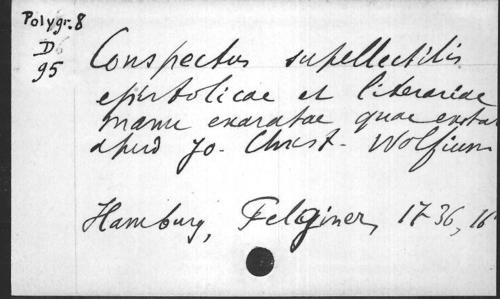 Polygr. 8
D
95
Conspectus supellectilis
epistolicae et literariae
manu exaratae quae exstat
apud Jo. Christ. Wolfium
Hamburg, Felginer, 1736, 16